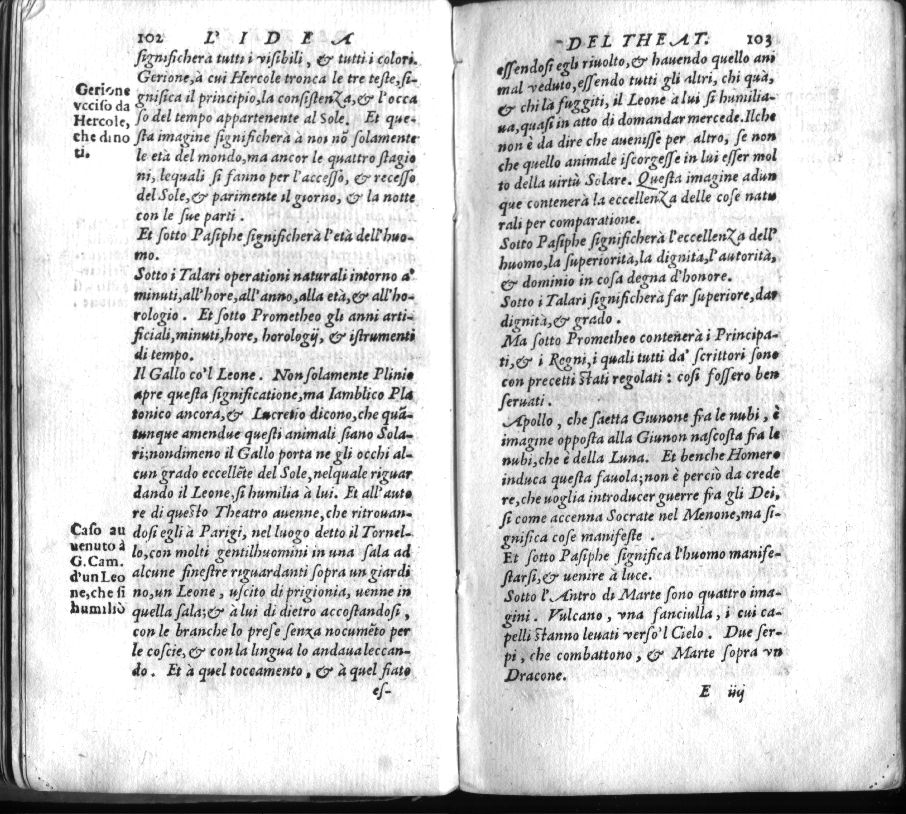 102 L'IDEA
significherà tutti i visibili, & tutti i colori.
Gerione, à cui Hercole tronca le tre teste, si-
gnifica il principio, la consistenza, & l'occa
so del tempo appartenente al Sole. Et que-
sta imagine significherà à noi nõ solamente
le età del mondo, ma ancor le quattro stagio
ni, lequali si fanno per l'accesso, & recesso
del Sole, & parimente il giorno, & la notte
con le sue parti.
Et sotto Pasiphe significherà l'età dell'huo-
mo.
Sotto i Talari operationi naturali intorno a'
minuti, all'hore, all'anno, alla età, & all'ho-
rologio. Et sotto Prometheo gli anni arti-
ficiali, minuti, hore, horologij, & istrumenti
di tempo.
Il Gallo co'l Leone. Non solamente Plinio
apre questa significatione, ma Iamblico Pla
tonico ancora, & Lucretio dicono, che quã
tunque amendue questi animali siano Sola-
ri; nondimeno il Gallo porta ne gli occhi al-
cun grado eccellẽte del Sole, nelquale riguar
dando il Leone, si humilia à lui. Et all'auto
re di questo Theatro auenne, che ritrouan-
dosi egli à Parigi, nel luogo detto il Tornel-
lo, con molti gentilhuomini in una sala ad
alcune finestre riguardanti sopra un giardi
no, un Leone, uscito di prigionia, uenne in
quella sala; & à lui di dietro accostandosi,
con le branche lo prese senza nocumẽto per
le coscie, & con la lingua lo andaua leccan-
do. Et à quel toccamento, & à quel fiato
es-
Gerione
vcciso da
Hercole,
che dino
ti.
Caso au
uenuto à
G. Cam.
d'un Leo
ne, che si
humiliò
DEL THEAT. 103
essendosi egli riuolto, & hauendo quello ani
mal veduto, essendo tutti gli altri, chi quà,
& chi là fuggiti, il Leone à lui si humilia-
ua, quasi in atto di domandar mercede. Ilche
non è da dire che auenisse per altro, se non
che quello animale iscorgesse in lui esser mol
to della virtù Solare. Questa imagine adun
que contenerà la eccellenza delle cose natu
rali per comparatione.
Sotto Pasiphe significherà l'eccellenza dell'
huomo, la superiorità, la dignità, l'autorità,
& dominio in cosa degna d'honore.
Sotto i Talari significherà far superiore, dar
dignità, & grado.
Ma sotto Prometheo contenerà i Principa-
ti, & i Regni, i quali tutti da' scrittori sono
con precetti stati regolati: così fossero ben
seruati.
Apollo, che saetta Giunone fra le nubi, è
imagine opposta alla Giunon nascosta fra le
nubi, che è della Luna. Et benche Homero
induca questa fauola; non è perciò da crede
re, che uoglia introducer guerre fra gli Dei,
si come accenna Socrate nel Menone, ma si-
gnifica cose manifeste.
Et sotto Pasiphe significa l'huomo manife-
starsi, & uenire à luce.
Sotto l'Antro di Marte sono quattro ima-
gini. Vulcano, vna fanciulla, i cui ca-
pelli stanno leuati verso'l Cielo. Due ser-
pi, che combattono, & Marte sopra vn
Dracone.
E iiij